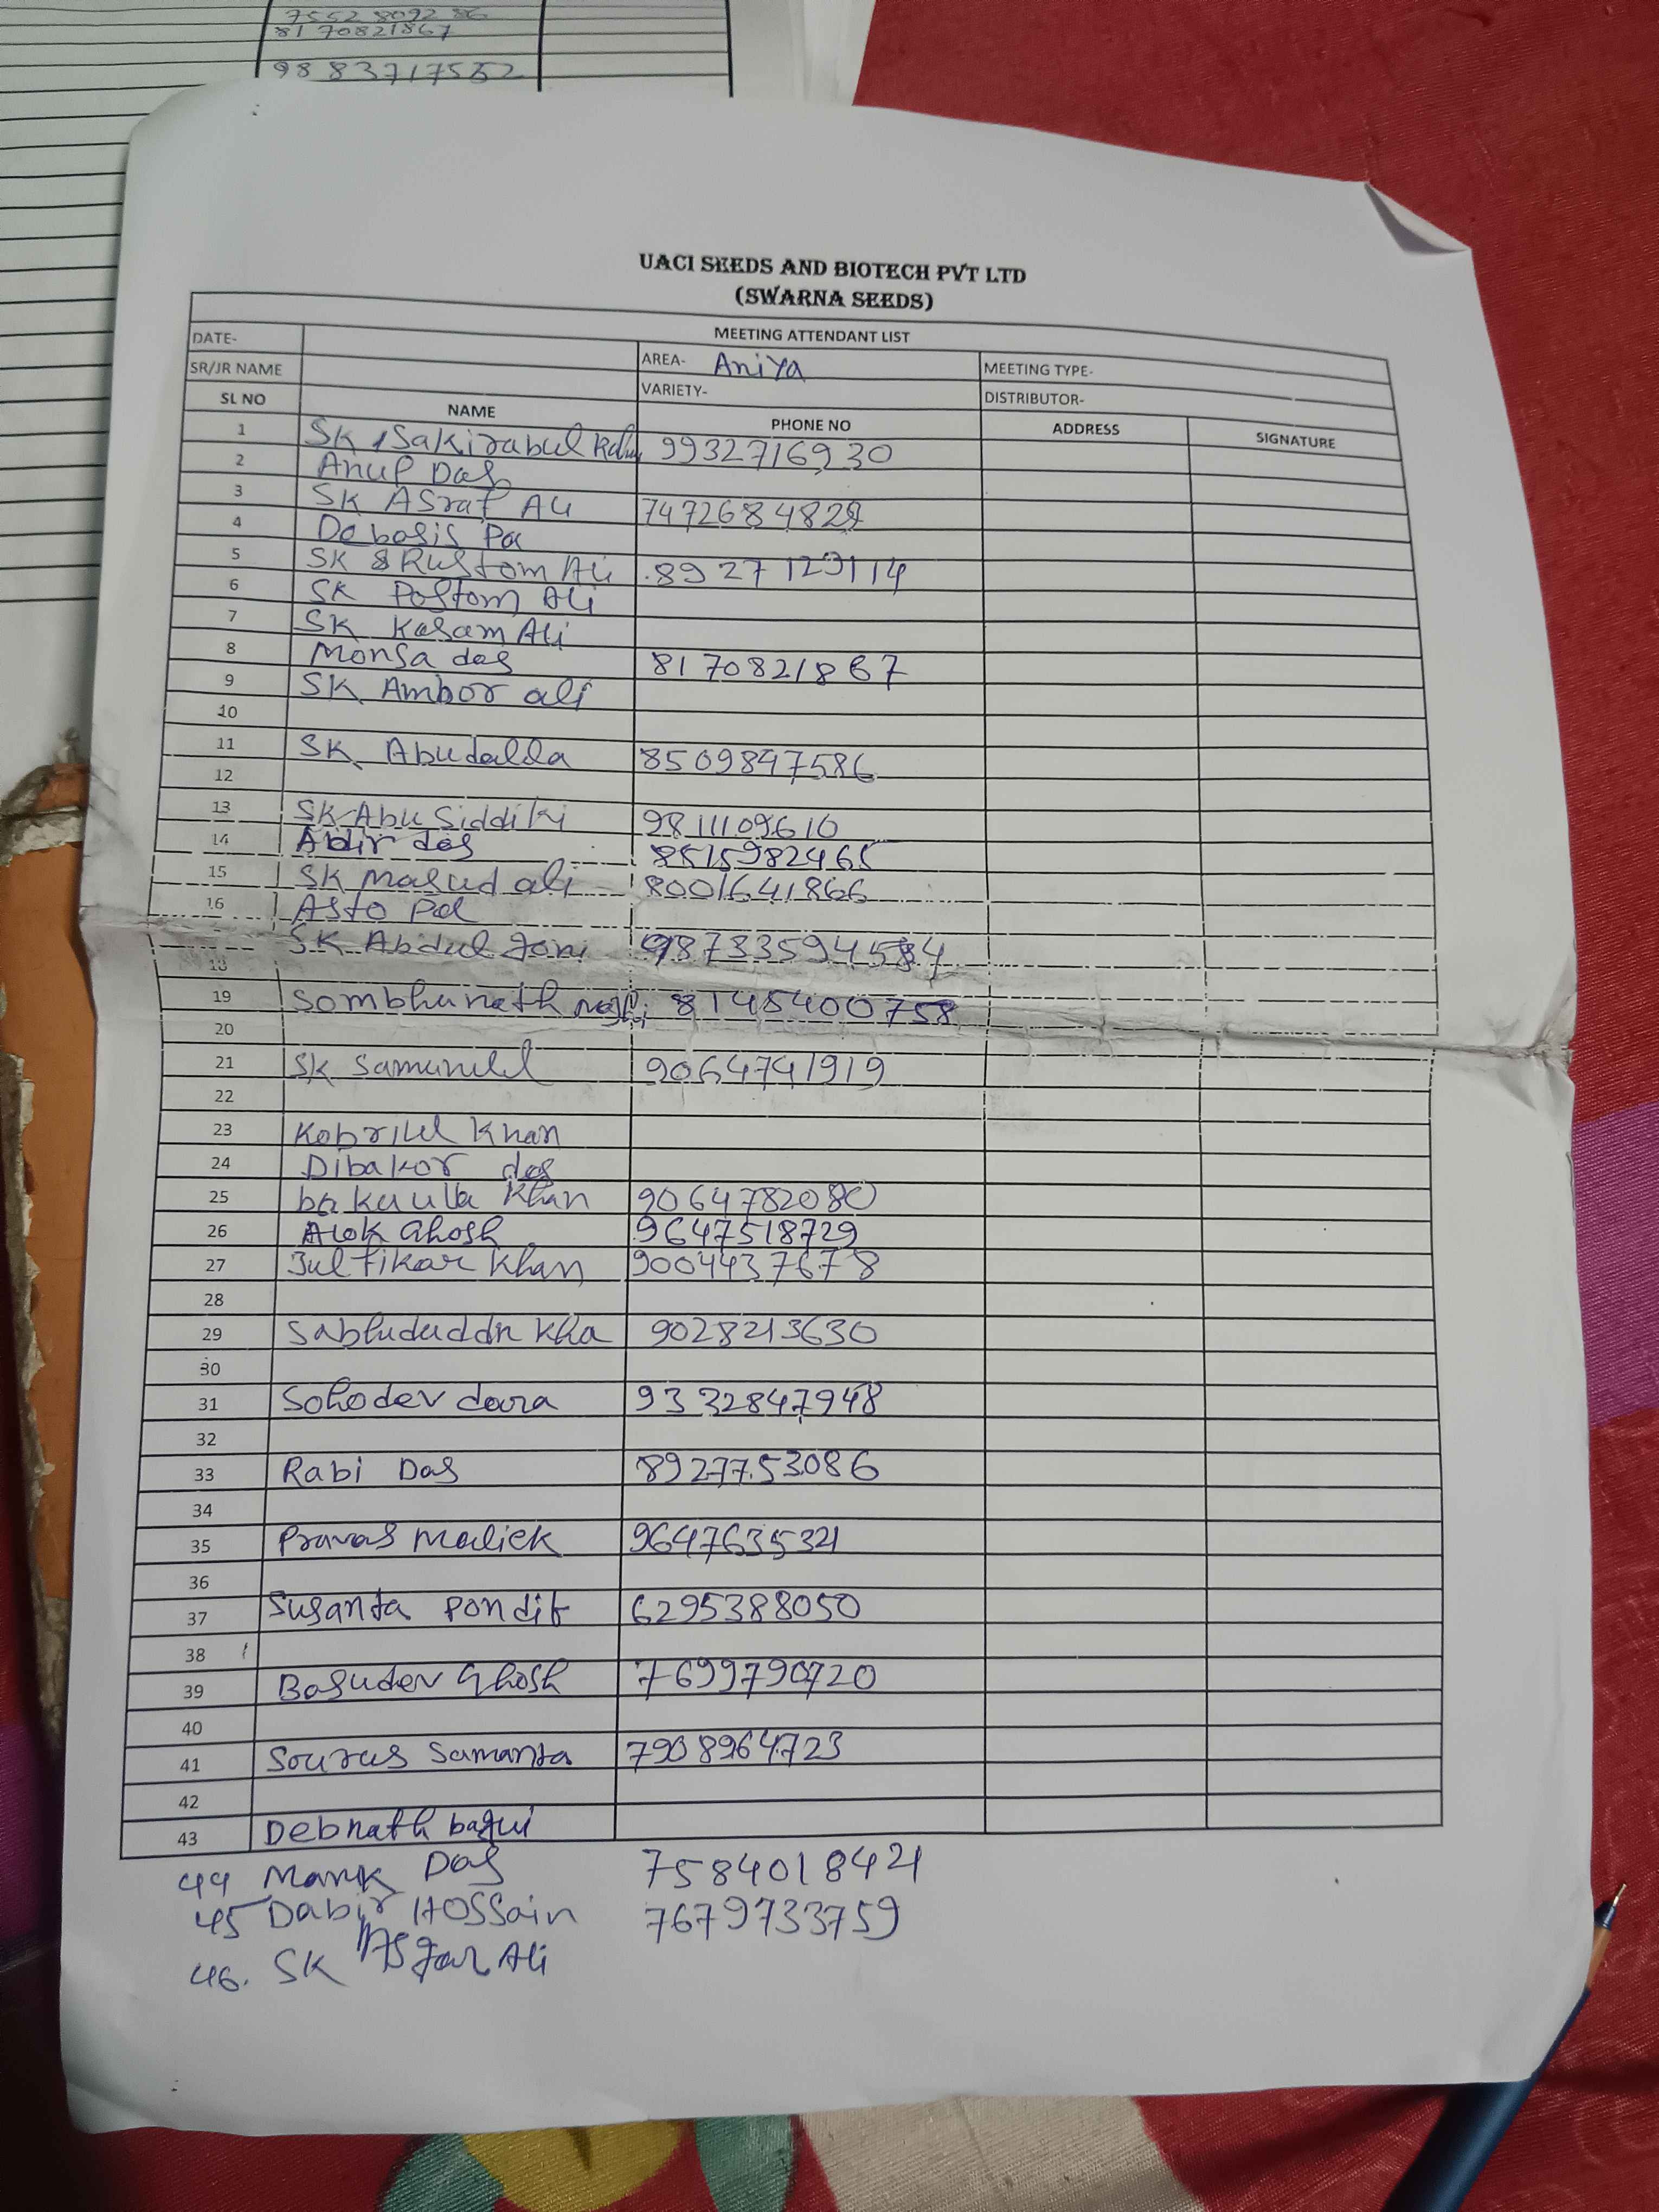 7552 8092 86
81 70821867
98 83717552
UACI SEEDS AND BIOTECH PVT LTD
(SWARNA SEEDS)
MEETING ATTENDANT LIST
DATE- AREA- Aniya MEETING TYPE-
SR/JR NAME VARIETY- DISTRIBUTOR-
SL NO NAME PHONE NO ADDRESS SIGNATURE
1 SK Sakirabul 9932716930
2 Anup Das
3 SK ASraf Ali 7472684829
4 Debasis Pa
5 SK Rustom Ali 8927129114
6 SK Postom Ali
7 SK Kasam Ali
8 Monsa das 8170821867
9 SK Ambor ali
10
11 SK Abudalla 8509847586
12
13 SK Abu Siddiki 9811109610
14 Abir das 8515982465
15 SK Masud ali 8001641866
16 Asto Pal
SK Abdul Joni
18
19 Sombhunath 8145400758
20
21 SK Samunul 9064741919
22
23 Kobrilul Khan
24 Dibakor das
25 bakuulla Khan 9064782080
26 Alok Ghosh 9647518729
27 Julfikar Khan 9004437678
28
29 Sabhududdn Kha 9028213630
30
31 Sohodev dara 9332847948
32
33 Rabi Das 8927753086
34
35 Pravas Maliek 9647635321
36
37 Susanta Pondit 6295388050
38
39 Basudev Ghosh 7699790720
40
41 Sourav Samanta 7908964723
42
43 Debnath bagui
44 Manik Das 7584018421
45 Dabir Hossain 7679733759
46. SK Asgar Ali